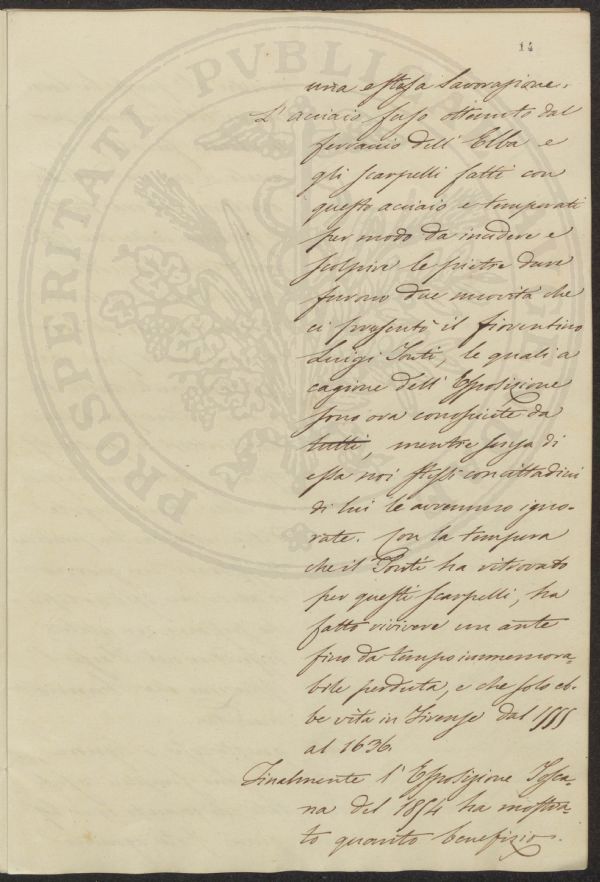 14
una estesa lavorazione.
L' acciaio fuso ottenuto dal
ferraccio dell' Elba e
gli scarpelli fatti con
questo acciaio e temperati
per modo da incidere e
scolpire le pietre dure
furono due novità che
ci presentò il fiorentino
Luigi Ponti, le quali a
cagione dell' Esposizione
sono ora conosciute da
tutti, mentre senza di
essa noi stessi concittadini
di lui le avremmo igno-
rate. Con la tempera
che il Ponti ha ritrovato
per questi scarpelli, ha
fatto rivivere un arte
fino da tempo immemora-
bile perduta, e che solo eb-
be vita in Firenze dal 1555
al 1636.
Finalmente l' Esposizione Tosca-
na del 1854 ha mostra-
to quanto benefizio
PROSPERITATI PVBLICAE